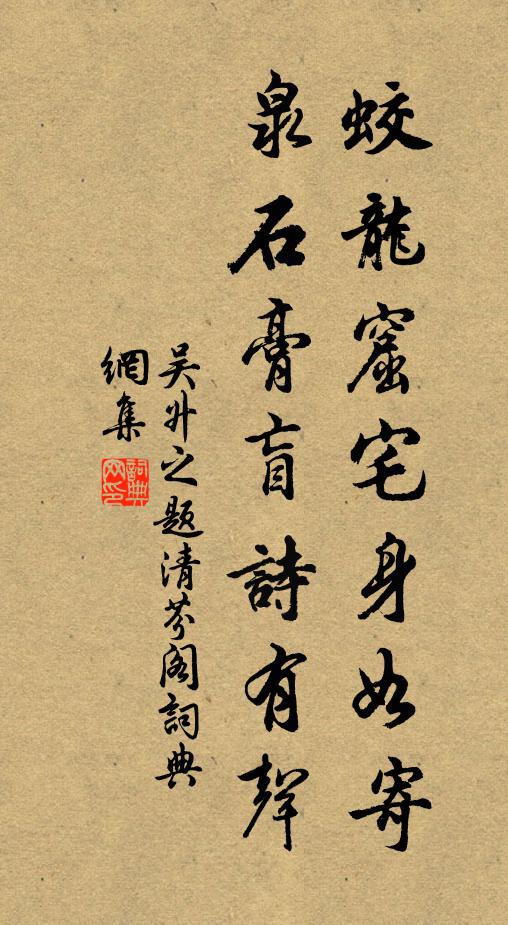 蛟龍窟宅身如寄
泉石膏盲詩有聲
吴升之题清芬阁詞典
網集
詞典
网印